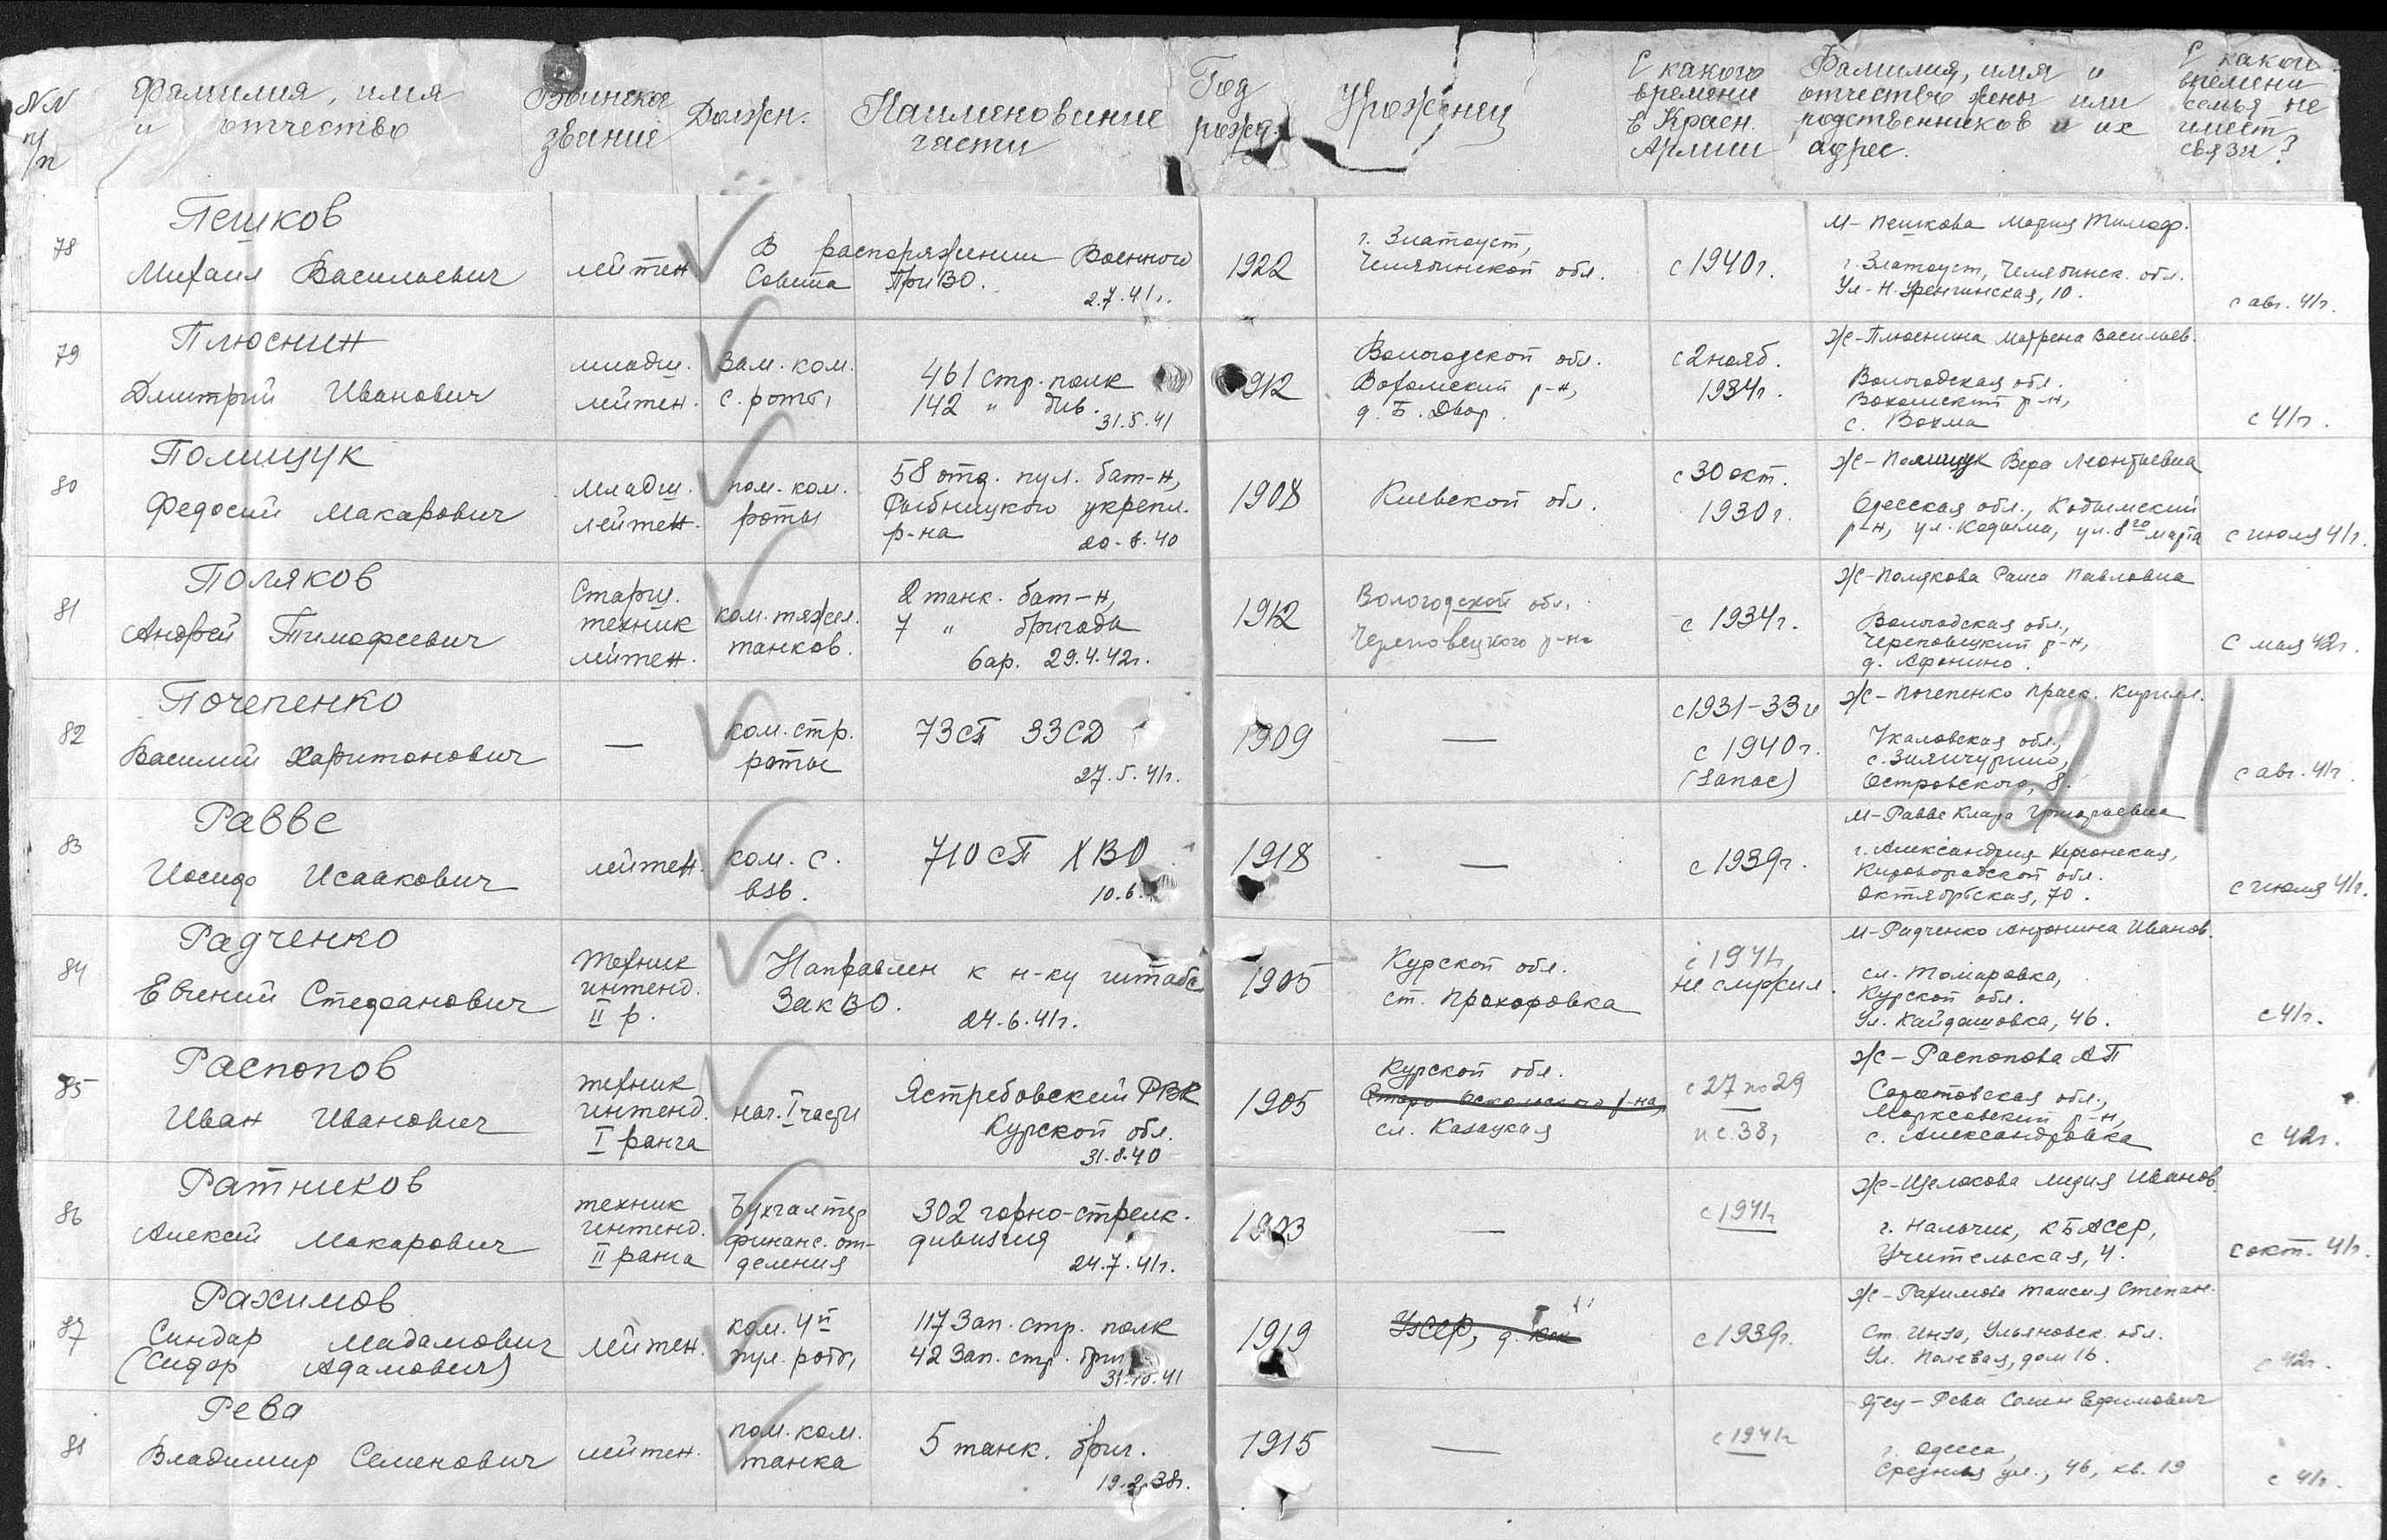 NN п/п
Фамилия, имя и отчество
Воинское звание
Должн.
Наименование части
Год рожд.
Уроженец
С какого времени в Красн. Армии
Фамилия, имя и отчество жены или родственников и их адрес.
С какого времени семья не имеет связи?
78
Пешков
Михаил Васильевич
лейтен
В распоряжении Военного
Совета ПриВО.
2.7.41г.
1922
г. Златоуст,
Челябинской обл.
с 1940г.
М- Пешкова Мария Тимоф.
г. Златоуст, Челябинск. обл.
Ул- Н. Уренгинская, 10.
с авг. 41г.
79
Плюснин
Дмитрий Иванович
младш.
лейтен.
Зам. ком.
с. роты
461 стр. полк
142 " див.
31.5.41
1912
Вологодской обл.
Вохомский р-н,
д. Б. Двор.
с 2 нояб.
1934г.
Ж-Плюснина Матрена Васильев.
Вологодская обл.
Вохомский р-н,
с. Вохма
с 41г.
80
Полищук
Федосий Макарович
младш.
лейтен.
пом. ком.
роты
58 отд. пул. бат-н,
Рыбницкого укрепл.
р-на
20-8.40
1908
Киевской обл.
с 30 окт.
1930г.
Ж- Полищук Вера Леонтьевна
Одесская обл., Кодымский
р-н, ул. Кодыма, ул. 8го марта
с июля 41г.
81
Поляков
Андрей Тимофеевич
Старш.
техник
лейтен.
ком. тяжел.
танков.
2 танк. бат-н,
7 " бригады
бар. 29.4.42г.
1912
Вологодской обл.
Череповецкого р-на
с 1934г.
Ж-Полякова Раиса Павловна
Вологодская обл.,
Череповецкий р-н,
д. Афонино.
С мая 42г.
82
Почепенко
Василий Харитонович
—
ком. стр.
роты
73 СП 33 СД
27.5.41г.
1909
—
с 1931-33 и
с 1940г.
(запас)
Ж- Почепенко Праск. Кирилл.
Чкаловская обл.,
с. Зиянчурино,
Островского, 8.
с авг. 41г.
211
83
Равве
Иосиф Исаакович
лейтен.
ком. с.
взв.
710 СП ХВО
10.6.
1918
—
с 1939г.
М-Равве Клара Григорьевна
г. Александрия Херсонская,
Кировоградской обл.
Октябрьская, 70.
с июля 41г.
84
Радченко
Евгений Стефанович
Техник
интенд.
II р.
Направлен к н-ку штаба
ЗакВО.
24.6.41г.
1905
Курской обл.
ст. Прохоровка
с 1941г.
не служил.
М-Радченко Антонина Иванов.
сл. Томаровка,
Курской обл.
Ул. Кайдашовка, 46.
с 41г.
85
Распопов
Иван Иванович
техник
интенд.
I ранга
нач. I части
Ястребовский РВК
Курской обл.
31.8.40
1905
Курской обл.
Старо-Оскольского р-на,
сл. Казацкая
с 27 по 29
и с 38г
Ж- Распопова А П
Саратовская обл.,
Марксовский р-н,
с. Александровка
с 42г.
86
Ратников
Алексей Макарович
техник
интенд.
II ранга
Бухгалтер
финанс. от-
деления
302 горно-стрелк.
дивизия
24.7.41г.
1903
—
с 1941г
Ж-Щелокова Лидия Иванов.
г. Нальчик, КБАССР,
Учительская, 4.
с окт. 41г.
87
Рахимов
Синдар Мадамович
(Сидор Адамович)
лейтен.
ком. 4й
пул. роты
117 Зап. стр. полк
42 Зап. стр. бриг
31.10.41
1919
УзССР, д. Кок
с 1939г.
Ж- Рахимова Таисия Степан.
Ст. Инза, Ульяновск. обл.
Ул. Полевая, дом 16.
с 42г.
88
Рева
Владимир Семенович
лейтен.
пом. ком.
танка
5 танк. бриг.
19.2.38г.
1915
—
с 1941г
Отец- Рева Семен Ефимович
г. Одесса,
Средняя ул., 46, кв. 19
с 41г.